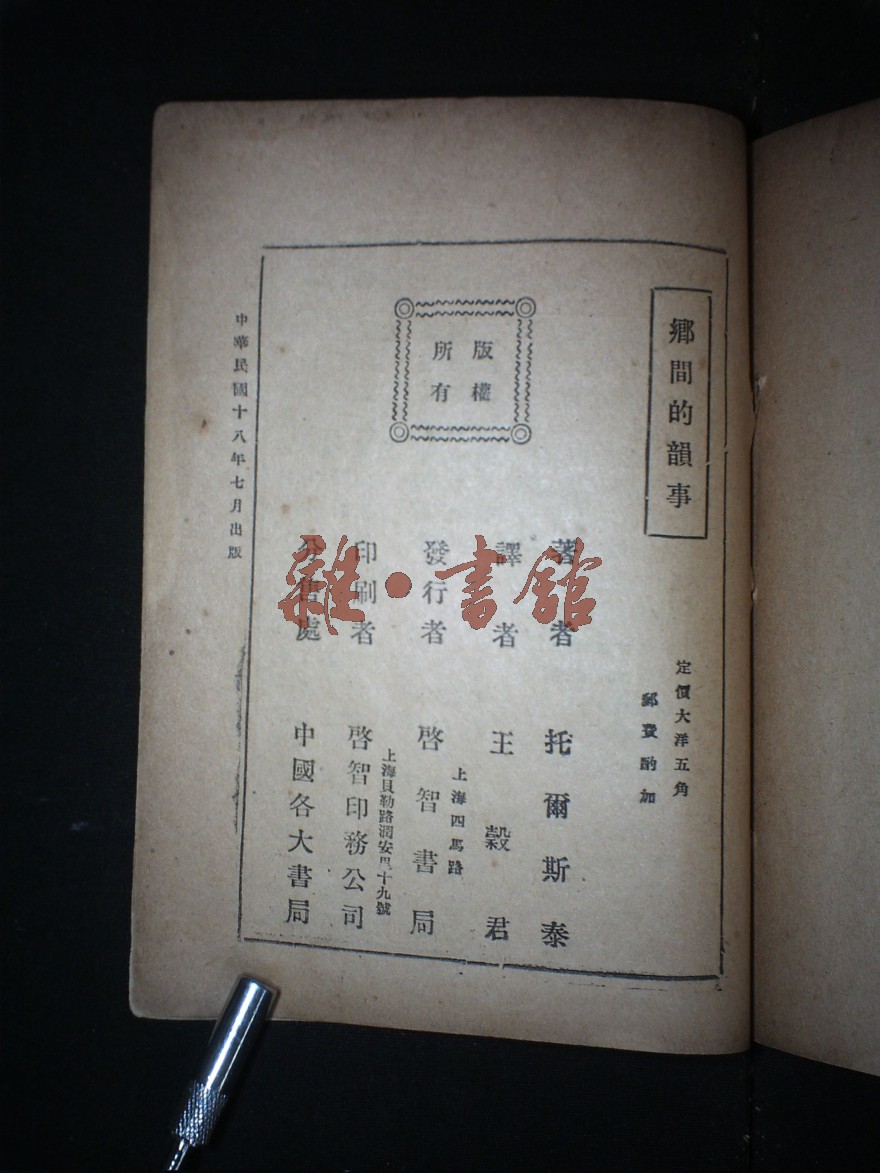 鄉間的韻事
定價大洋五角
郵費酌加
版權
所有
著者 托爾斯泰
譯者 王穀君
上海四馬路
發行者 啓智書局
上海貝勒路潤安里十九號
印刷者 啓智印務公司
分售處 中國各大書局
中華民國十八年七月出版
雜·書館